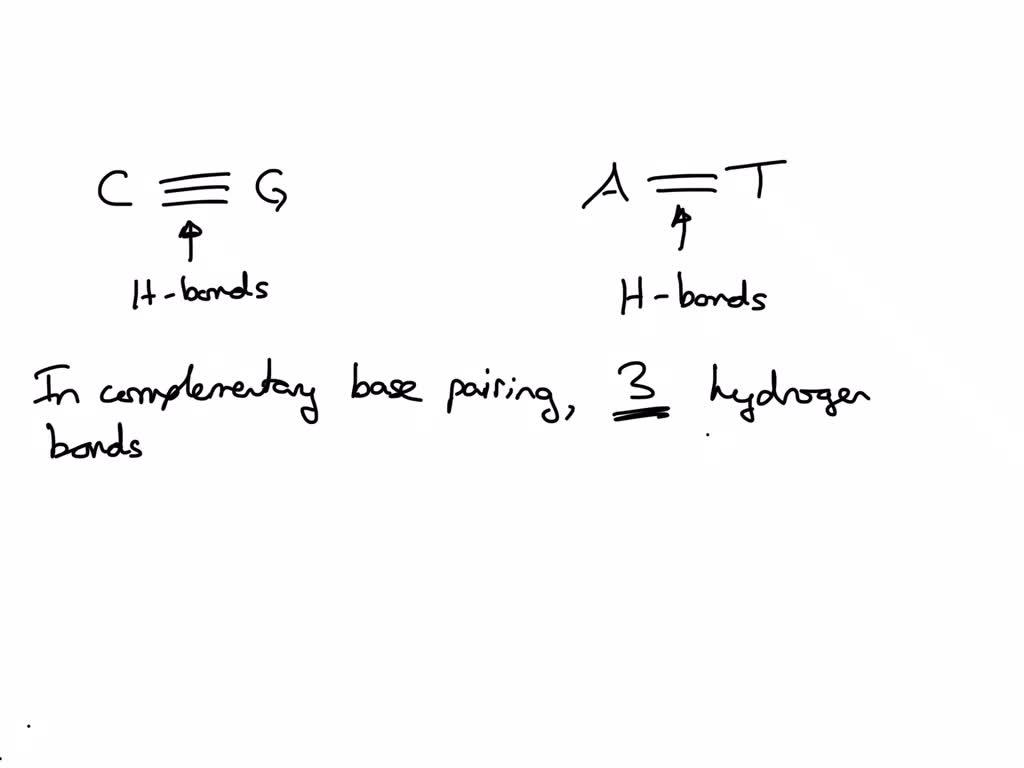 C ≡ G
A = T
H-bonds
H-bonds
In complementary base pairing, 3 hydrogen
bonds